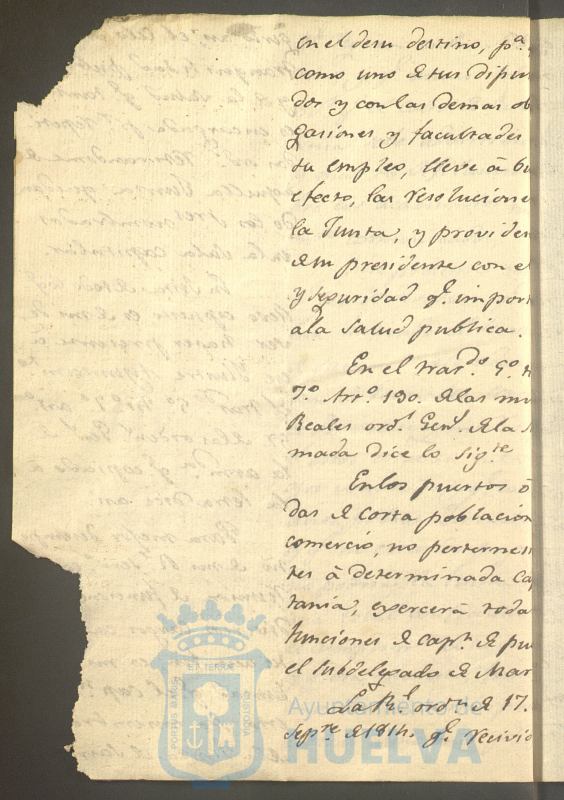 en el de su destino, p.ª
como uno de sus dipu
dos y con las demas ob
gasiones y facultades
su empleo, lleve á
efecto, las resolucione
la Junta, y providen
de su presidente con el
y seguridad q.e impor
ala salud publica.
En el trat.do 5.º
7.º Art.o 130. de las
Reales ord.s Gen.l de la
mada dice lo sig.te
En los puertos ó
das de corta poblacion
comercio, no pertenesi
tes á determinada Cap
tania, exercerá toda
funciones de Cap.n de pu
el subdelegado de Mar
La R.l ord.n de 17.
Sep.re de 1814. q.e recivio
Ayuntamiento de
HUELVA